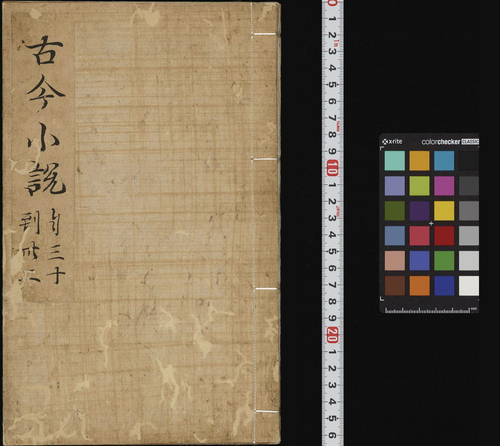 古今小說
自三十
到卅二
0
1
2
3
4
5
6
7
8
9
10
1
2
3
4
5
6
7
8
9
20
1
2
3
4
5
6
x-rite colorchecker CLASSIC